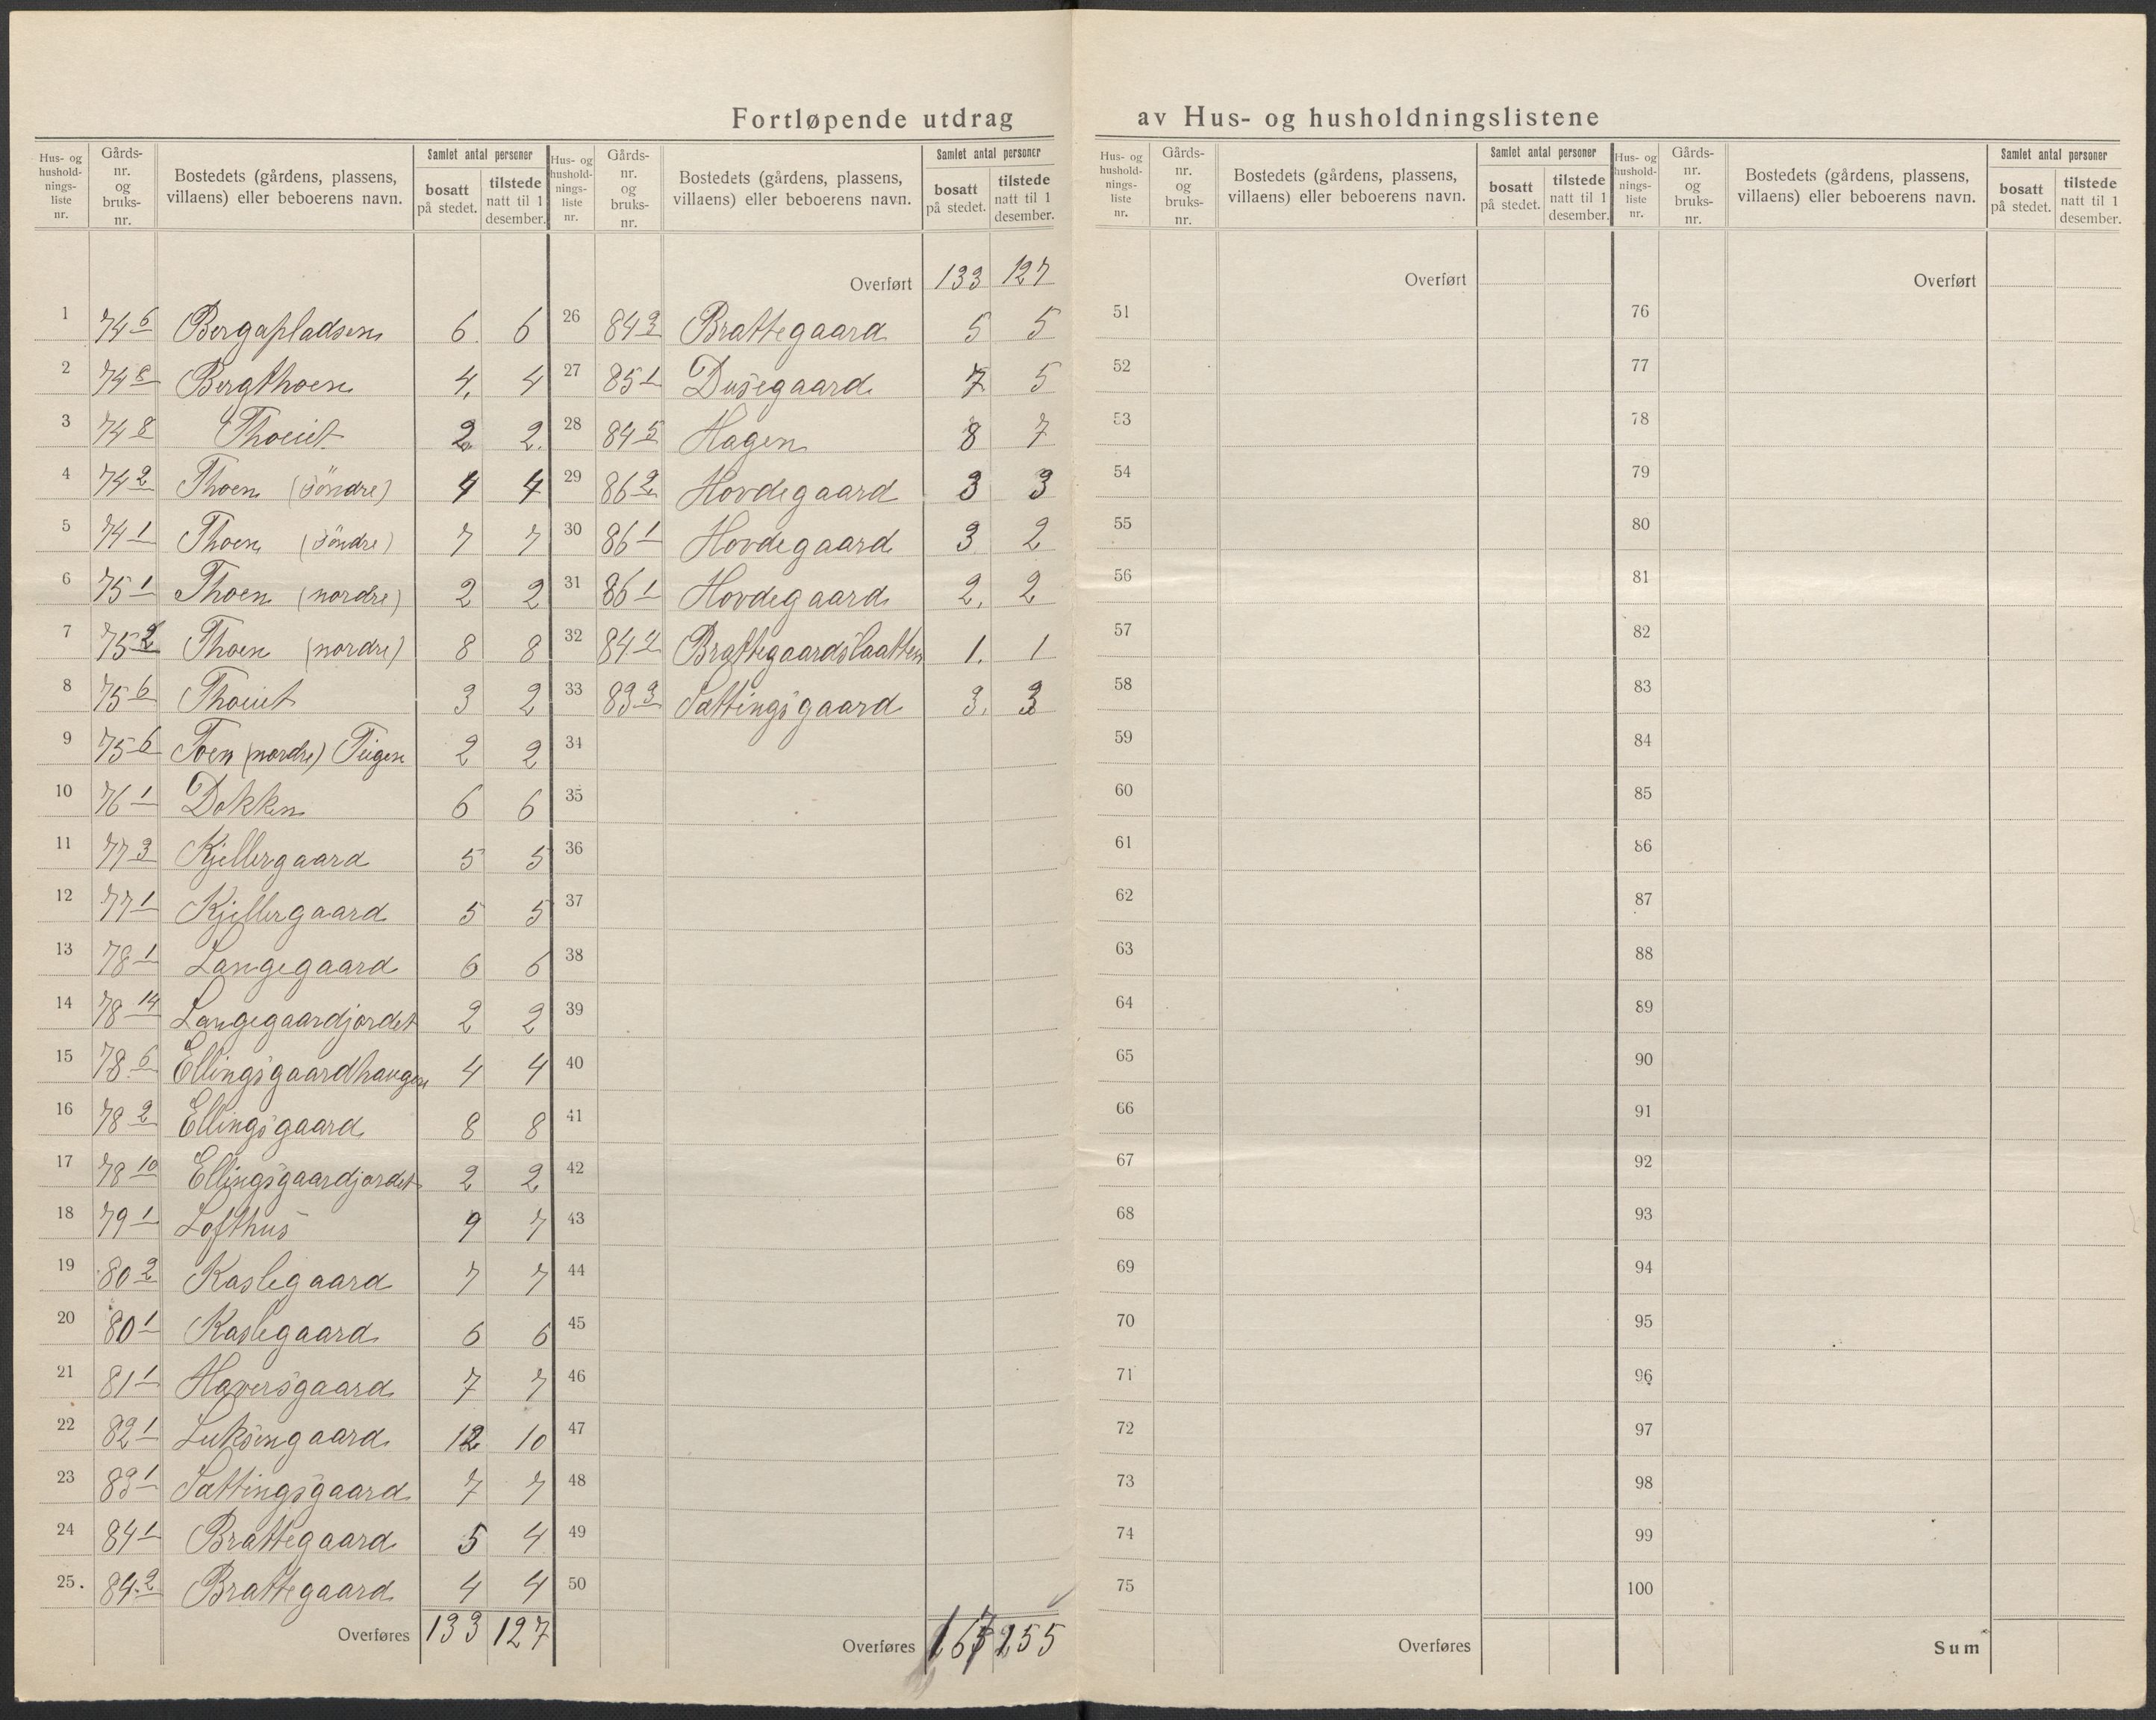 Fortløpende utdrag av Hus- og husholdningslistene
Hus- og hushold-nings-liste nr. | Gårds-nr. og bruks-nr. | Bostedets (gårdens, plassens, villaens) eller beboerens navn. | Samlet antal personer | bosatt på stedet. | tilstede natt til 1 desember.
1 74 6 Bergapladsen 6. 6
2 74 8 Bergthoen 4. 4
3 74 8 Thoeiet 2 2.
4 74 2 Thoen (söndre) 4 4
5 74 1 Thoen (söndre) 7 7
6 75 1 Thoen (nordre) 2 2
7 75 2 Thoen (nordre) 8 8
8 75 6 Thoeiet 3 2
9 75 6 Toen (nordre) Teigen 2 2
10 76 1 Dokken 6 6
11 77 3 Kjellergaard 5 5
12 77 1 Kjellergaard 5 5
13 78 1 Langegaard 6 6
14 78 14 Langegaardjordet 2 2
15 78 6 Ellingsgaardhaugen 4 4
16 78 2 Ellingsgaard 8 8
17 78 10 Ellingsgaardjordet 2 2
18 79 1 Lofthus 9 7
19 80 2 Kaslegaard 7 7
20 80 1 Kaslegaard 6 6
21 81 1 Haversgaard 7 7
22 82 1 Luksengaard 12 10
23 83 1 Sattingsgaard 7 7
24 84 1 Brattegaard 5 4
25. 84 2 Brattegaard 4 4
Overføres 133 127
Hus- og hushold-nings-liste nr. | Gårds-nr. og bruks-nr. | Bostedets (gårdens, plassens, villaens) eller beboerens navn. | Samlet antal personer | bosatt på stedet. | tilstede natt til 1 desember.
Overført 133 127
26 84 3 Brattegaard 5 5
27 85 1 Dusegaard 7 5
28 84 5 Hagen 8 7
29 86 2 Hovdegaard 3 3
30 86 1 Hovdegaard 3 2
31 86 1 Hovdegaard 2. 2
32 84 4 Brattegaardslaatten 1. 1
33 83 3 Sattingsgaard 3. 3
34
35
36
37
38
39
40
41
42
43
44
45
46
47
48
49
50
Overføres 155
Hus- og hushold-nings-liste nr. | Gårds-nr. og bruks-nr. | Bostedets (gårdens, plassens, villaens) eller beboerens navn. | Samlet antal personer | bosatt på stedet. | tilstede natt til 1 desember.
Overført
51
52
53
54
55
56
57
58
59
60
61
62
63
64
65
66
67
68
69
70
71
72
73
74
75
Overføres
Hus- og hushold-nings-liste nr. | Gårds-nr. og bruks-nr. | Bostedets (gårdens, plassens, villaens) eller beboerens navn. | Samlet antal personer | bosatt på stedet. | tilstede natt til 1 desember.
Overført
76
77
78
79
80
81
82
83
84
85
86
87
88
89
90
91
92
93
94
95
96
97
98
99
100
Sum